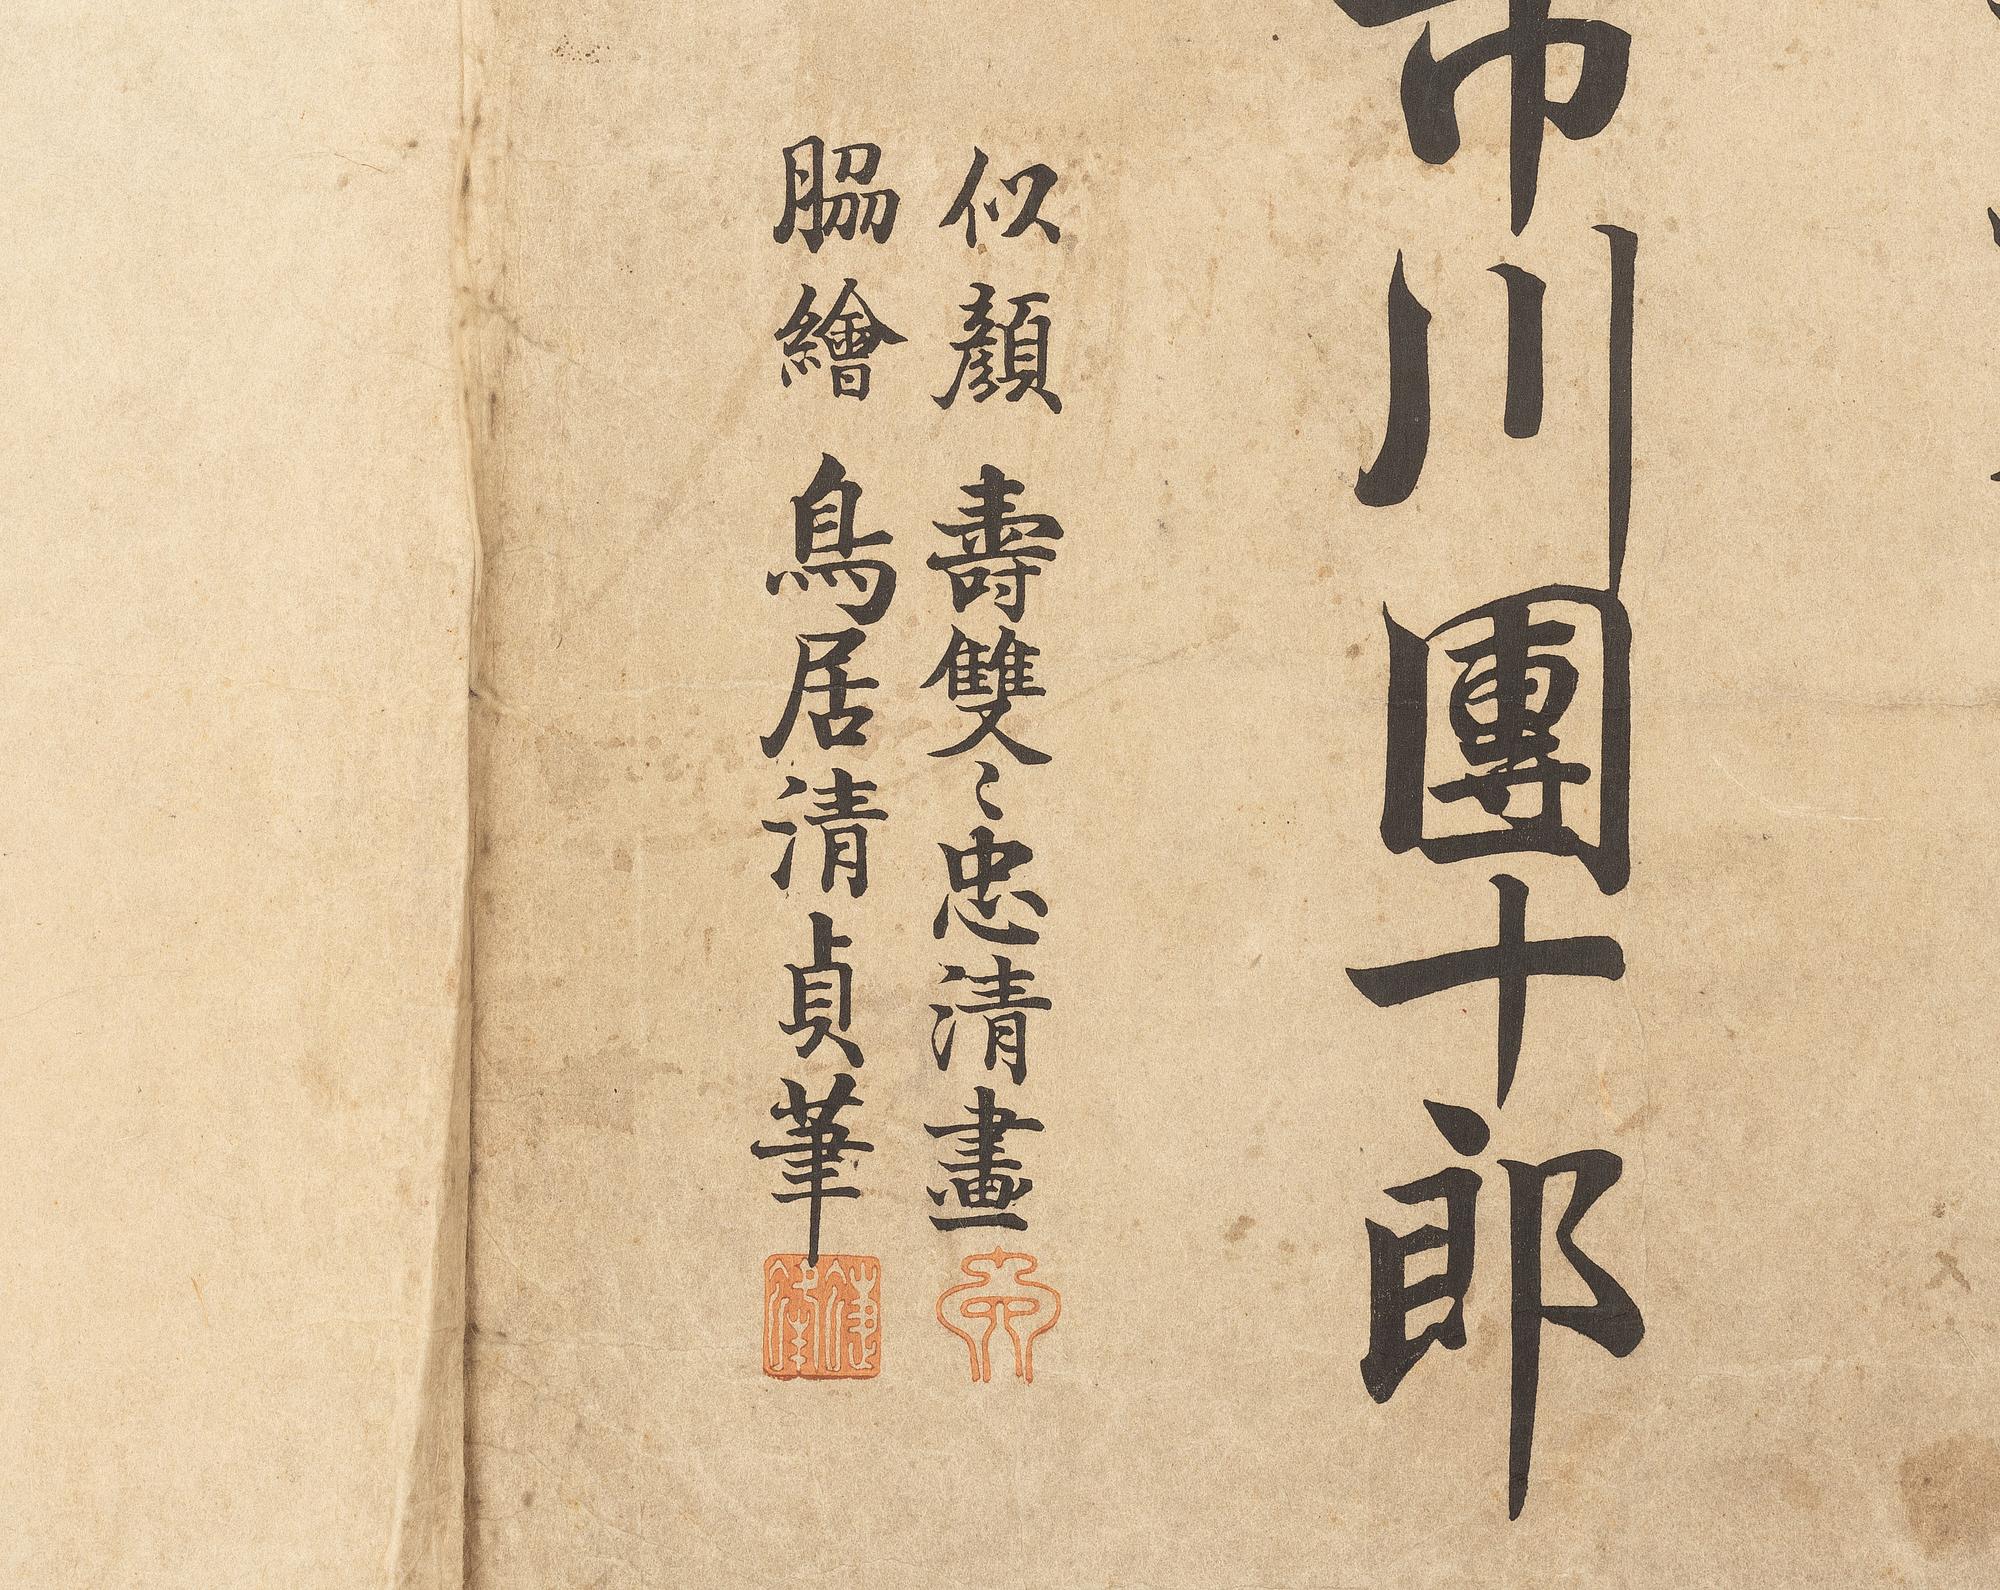 市川團十郎
似顔 壽雙々忠清畫
脇繪 鳥居清貞筆